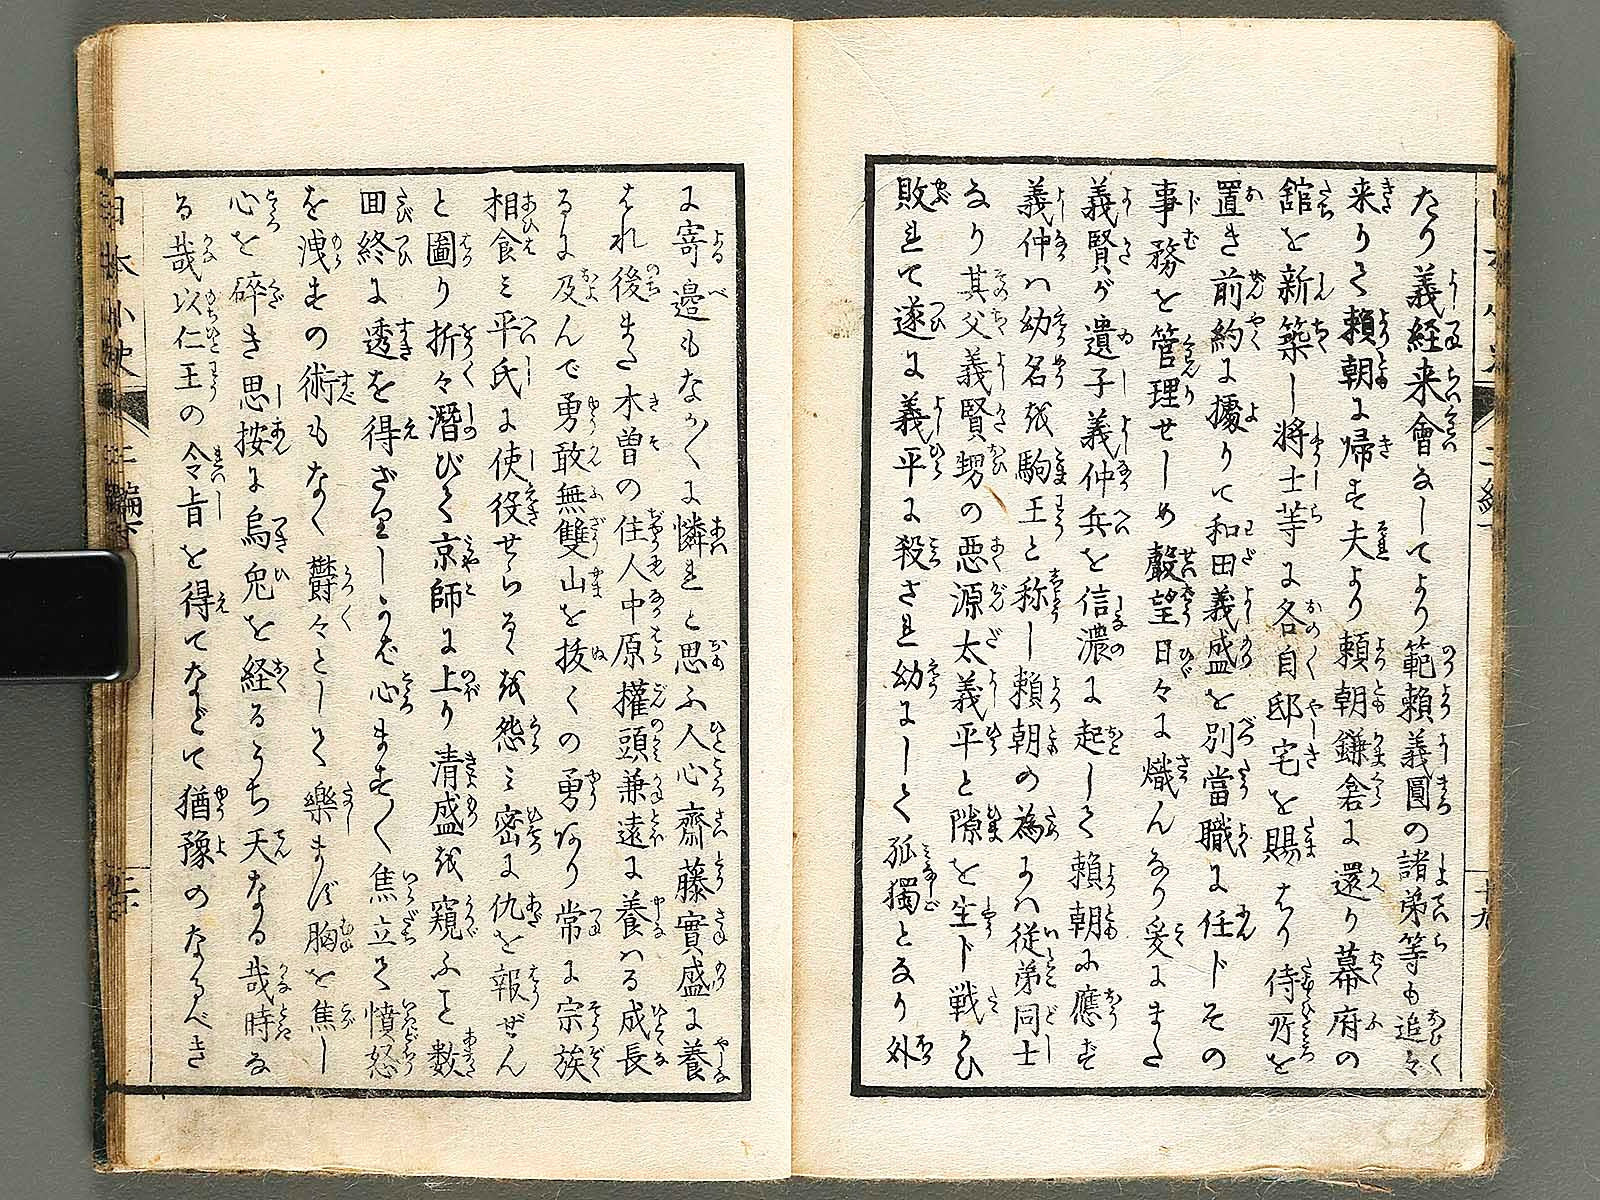 たり義経来會なしてより範頼義圓の諸弟等も追々
来りて頼朝に帰す夫より頼朝鎌倉に還り幕府の
舘を新築し將士等に各自邸宅を賜はり侍所を
置き前約に據りて和田義盛を別當職に任ドその
事務を管理せしめ聲望日々に熾んなり爰にまた
義賢が遺子義仲兵を信濃に起して頼朝に應ず
義仲ハ幼名を駒王と称し頼朝の為にハ従弟同士
なり其父義賢甥の悪源太義平と隙を生ド戦かひ
敗れて遂に義平に殺され幼にして孤獨となり外
に寄邉もなかりしに憐れと思ふ人心齋藤實盛に養
はれ後また木曽の住人中原權頭兼遠に養ハる成長
るに及んで勇敢無雙山を抜くの勇あり常に宗族
相食み平氏に使役せらるを怨み密に仇を報ぜん
と圖り折々潛びて京師に上り清盛を窺ふこと数
回終に透を得ざりしかば心ます〱焦立て憤怒
を洩すの術もなく欝々として樂まず胸を焦し
心を碎き思按に烏兎を経るうち天なる哉時な
る哉以仁王の令旨を得てなどて猶豫のなるべき
日本小史
二編下
十九
二十